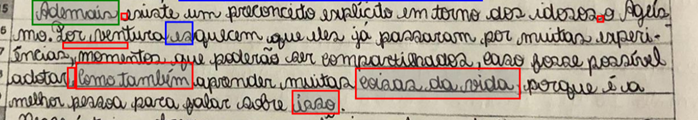 Ademais, existe um preconceito explícito em torno dos idosos, o Ageis
mo. Por ventura esquecem que eles já passaram, por muitas experi-
ências, momentos, que poderão ser compartilhados, caso fosse possível
adotar, como também aprender muitas coisas da vida, porque é a
melhor pessoa para falar sobre isso.